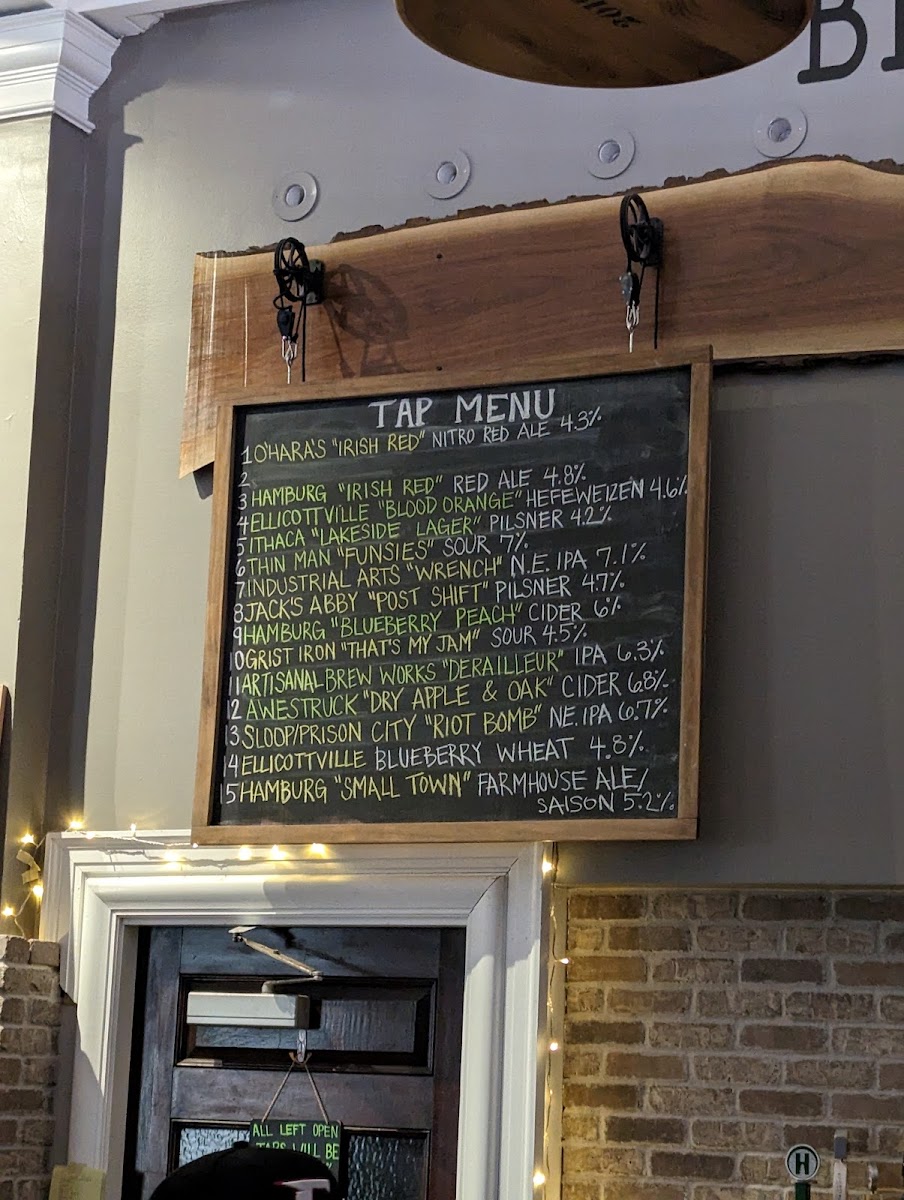 2015
BR
TAP MENU
1 O'HARA'S "IRISH RED" NITRO RED ALE 4.3%
2
3 HAMBURG "IRISH RED" RED ALE 4.8%
4 ELLICOTTVILLE "BLOOD ORANGE" HEFEWEIZEN 4.6%
5 ITHACA "LAKESIDE LAGER" PILSNER 4.2%
6 THIN MAN "FUNSIES" SOUR 7%
7 INDUSTRIAL ARTS "WRENCH" N.E. IPA 7.1%
8 JACK'S ABBY "POST SHIFT" PILSNER 4.7%
9 HAMBURG "BLUEBERRY PEACH" CIDER 6%
10 GRIST IRON "THAT'S MY JAM" SOUR 4.5%
11 ARTISANAL BREW WORKS "DERAILLEUR" IPA 6.3%
12 AWESTRUCK "DRY APPLE & OAK" CIDER 6.8%
13 SLOOP/PRISON CITY "RIOT BOMB" NE. IPA 6.7%
14 ELLICOTTVILLE BLUEBERRY WHEAT 4.8%
15 HAMBURG "SMALL TOWN" FARMHOUSE ALE/
SAISON 5.2%
ALL LEFT OPEN
TABS WILL BE
H